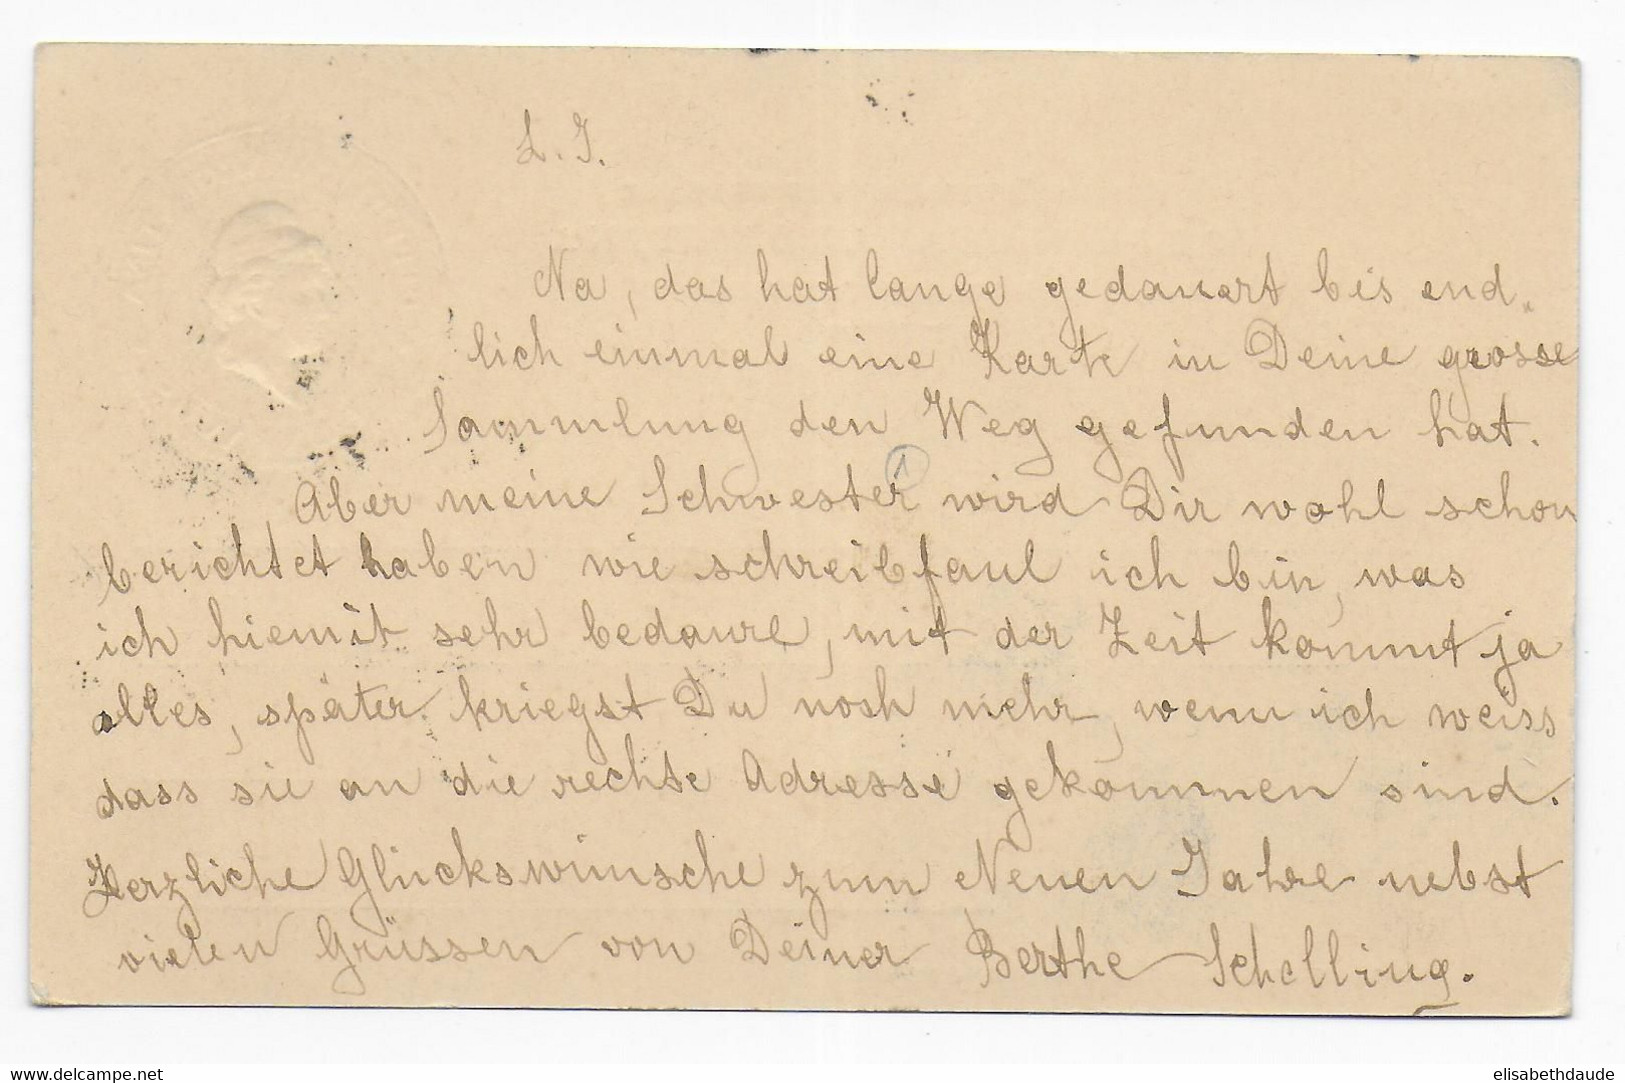 L. J.
Na, das hat lange gedauert bis end„
lich einmal eine Karte in Deine grosse
Sammlung den Weg gefunden hat.
1
Aber meine Schwester wird Dir wohl schon
berichtet haben wie schreibfaul ich bin, was
ich hiemit sehr bedaure, mit der Zeit kommt ja
alles, später kriegst Du noch mehr, wenn ich weiss
dass sie an die rechte Adresse gekommen sind.
Herzliche Glückswünsche zum Neuen Jahre nebst
vielen Grüssen von Deiner Berthe Schelling.
www.delcampe.net
elisabethdaude